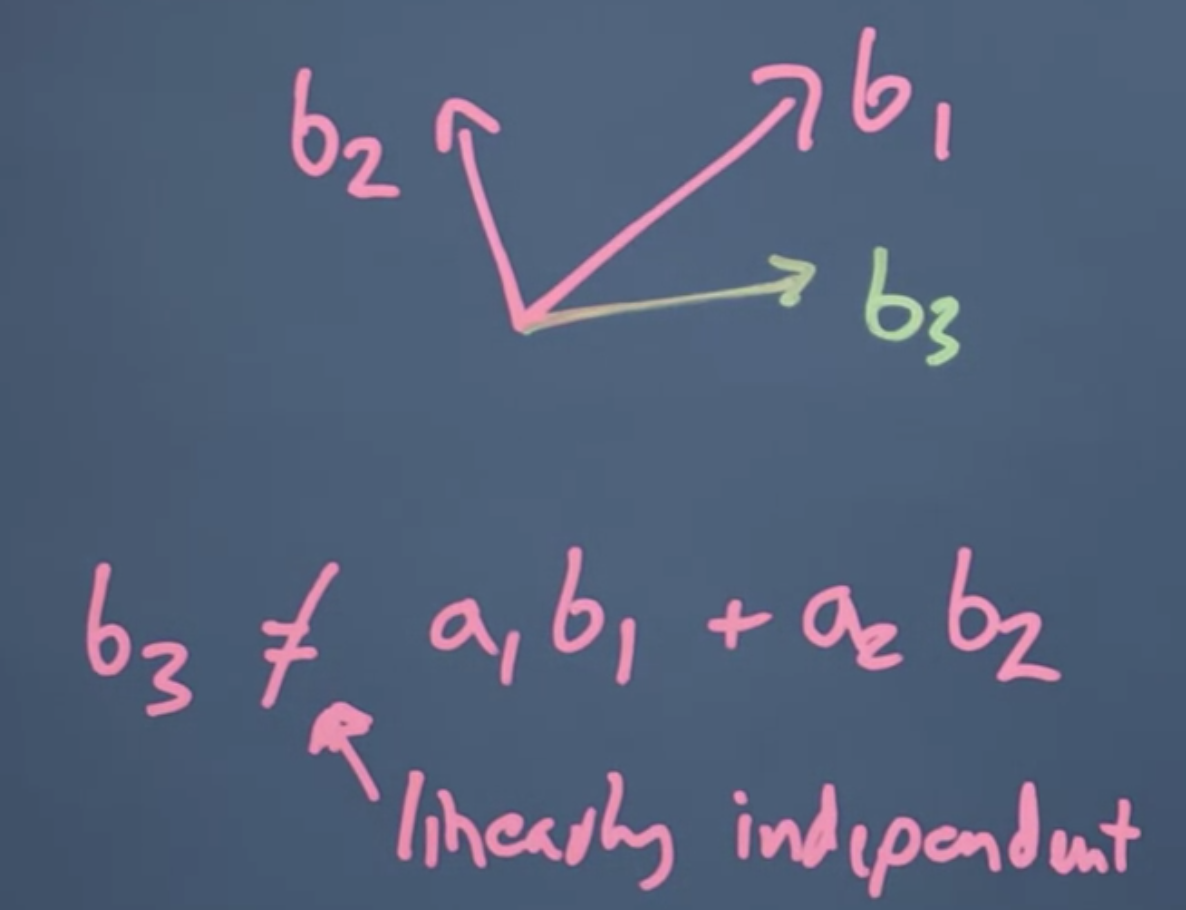 b₂
b₁
b₃
b₃ ≠ a₁b₁ + a₂b₂
linearly independent